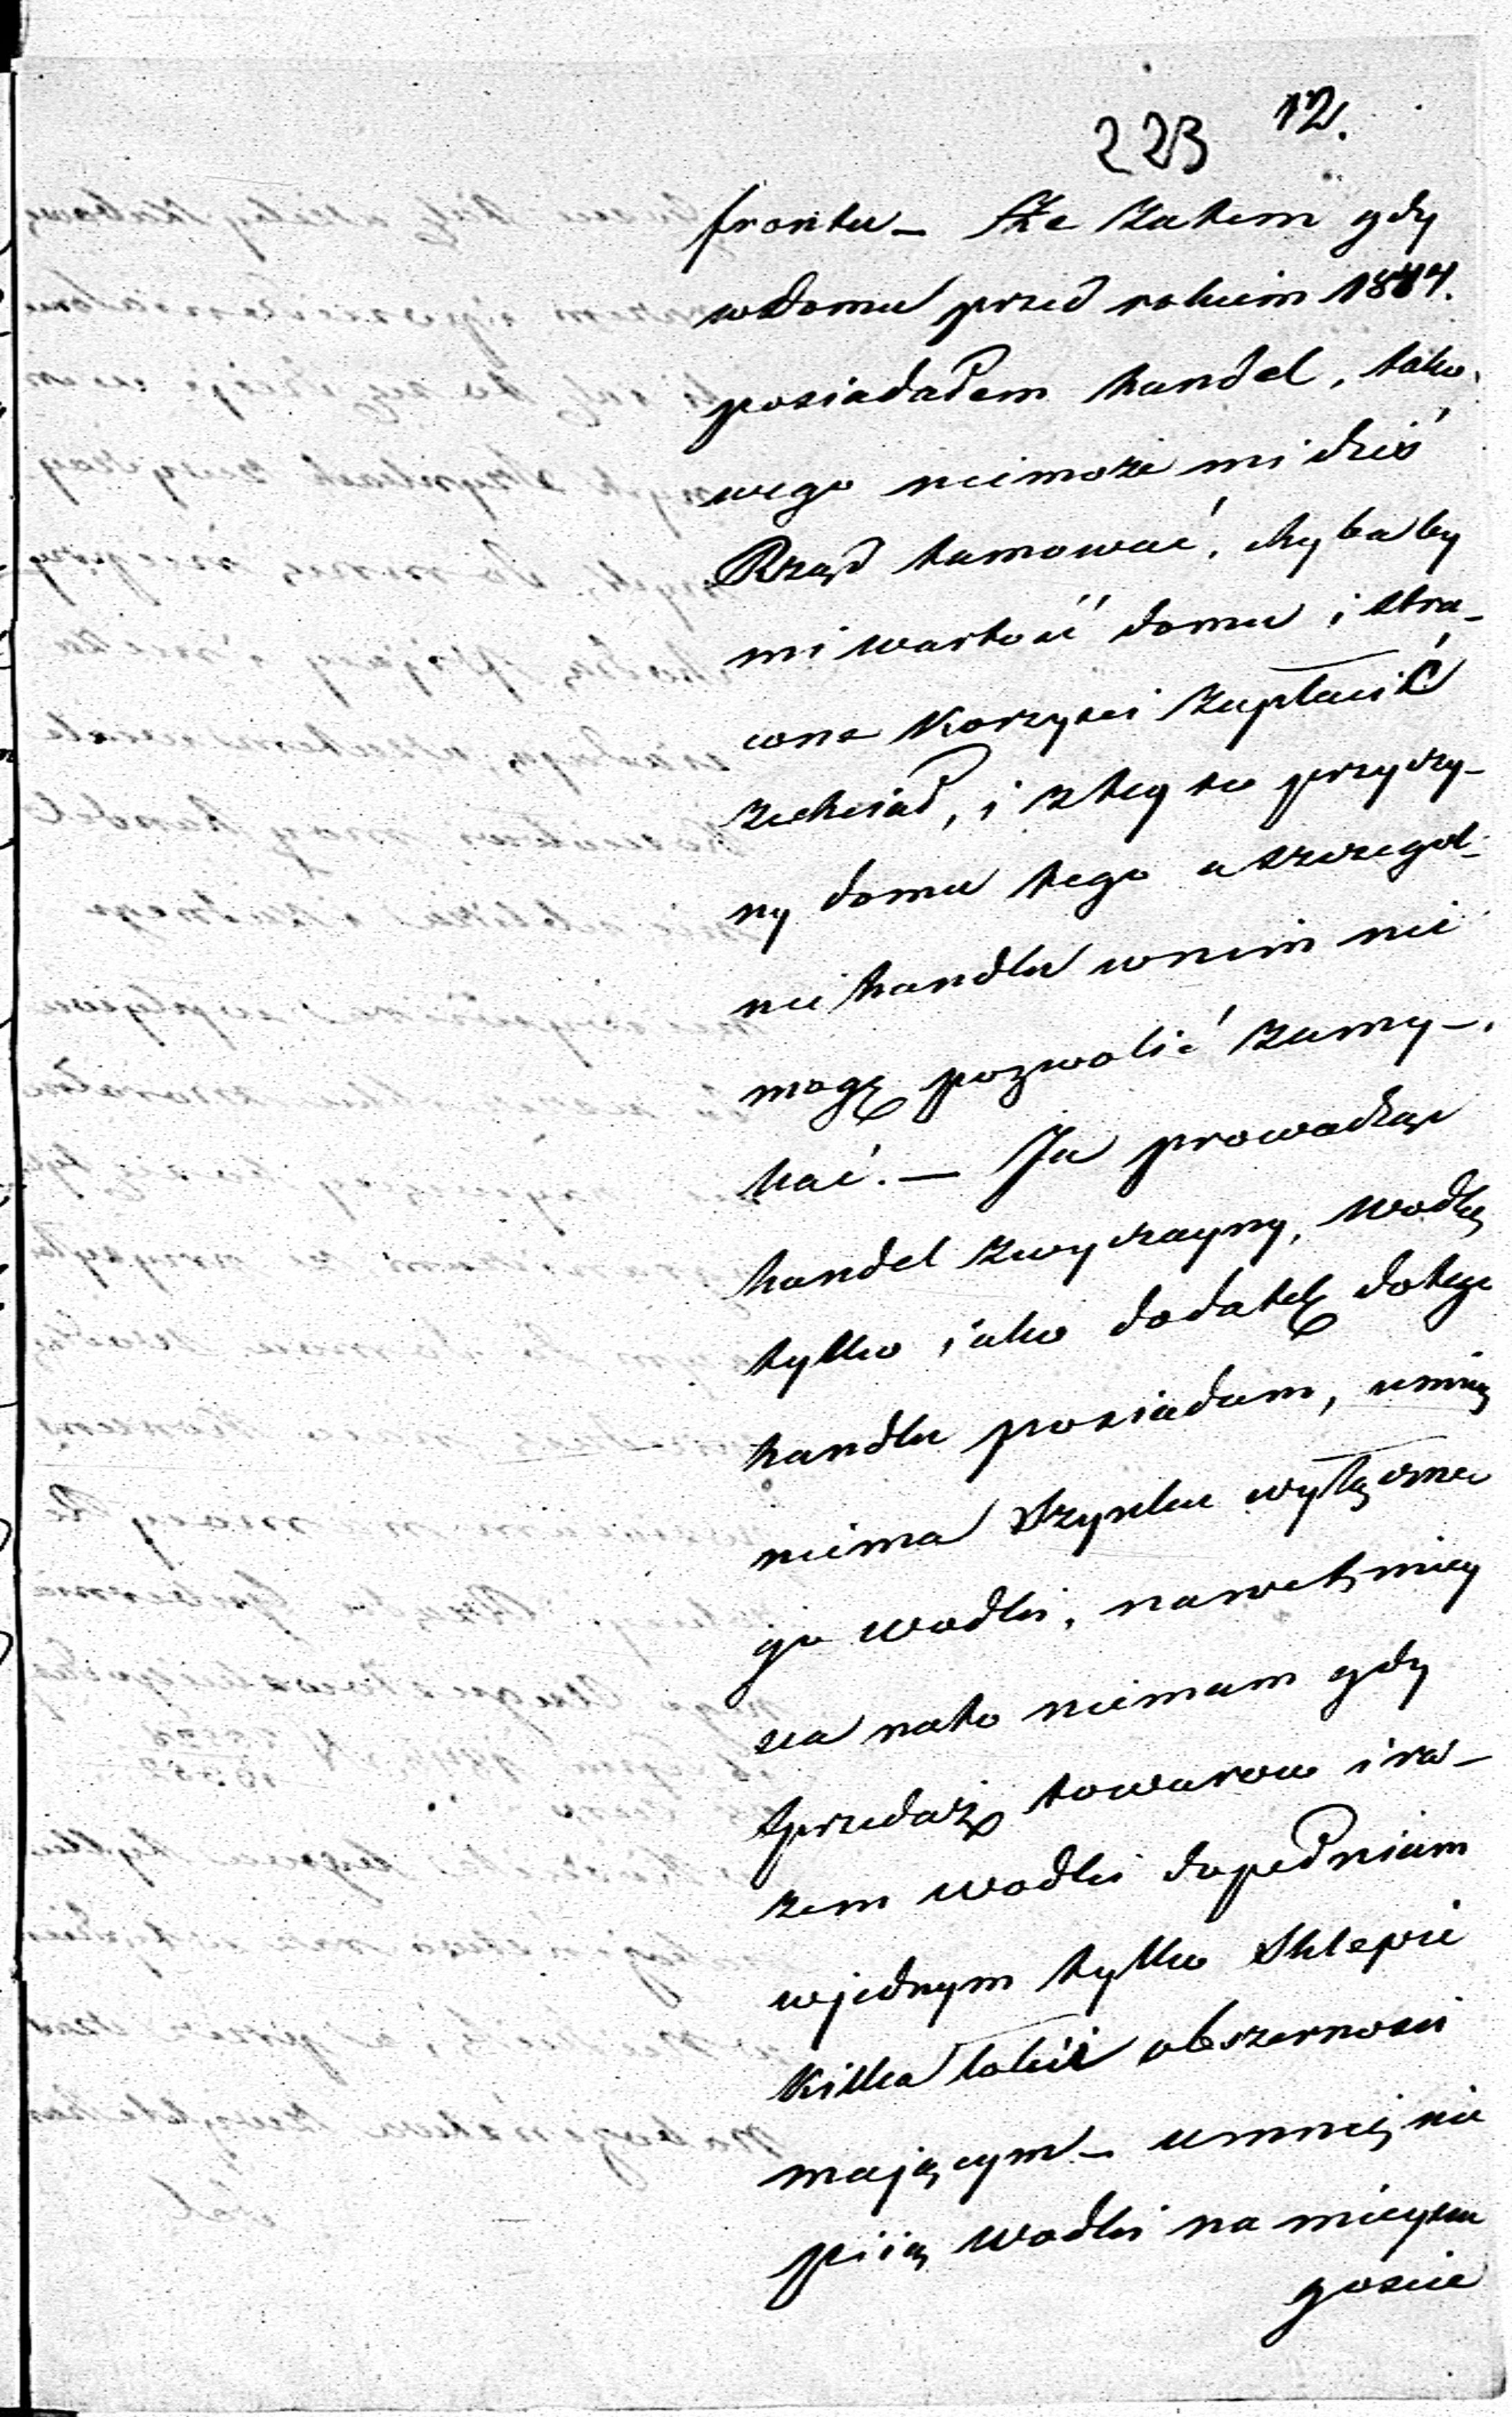 223 12.
frontu – Że zatem gdy
w domu przed rokiem 1844.
posiadałem handel, tako-
wego niemoże mi dziś
Rząd tamować, chybaby
mi wartość domu i stra-
cone korzyści zapłacić
zechciał, i z tey to przyczy-
ny domu tego a szczegól-
nie handlu wnim nie
mogę pozwolić zamy-
kać. – Ja prowadząc
handel zwyczayny, wodkę
tylko iako dodatek dotego
handlu posiadam, umnię
niema szynku wyłączne
go wodki, nawet miey
sca nato niemam gdy
sprzedaż towarow i ra-
zem wodki dopełniam
wjednym tylko sklepie
kilka łokci obszerności
mającym – umnię nie
piią wodki na mieyscu
goscie